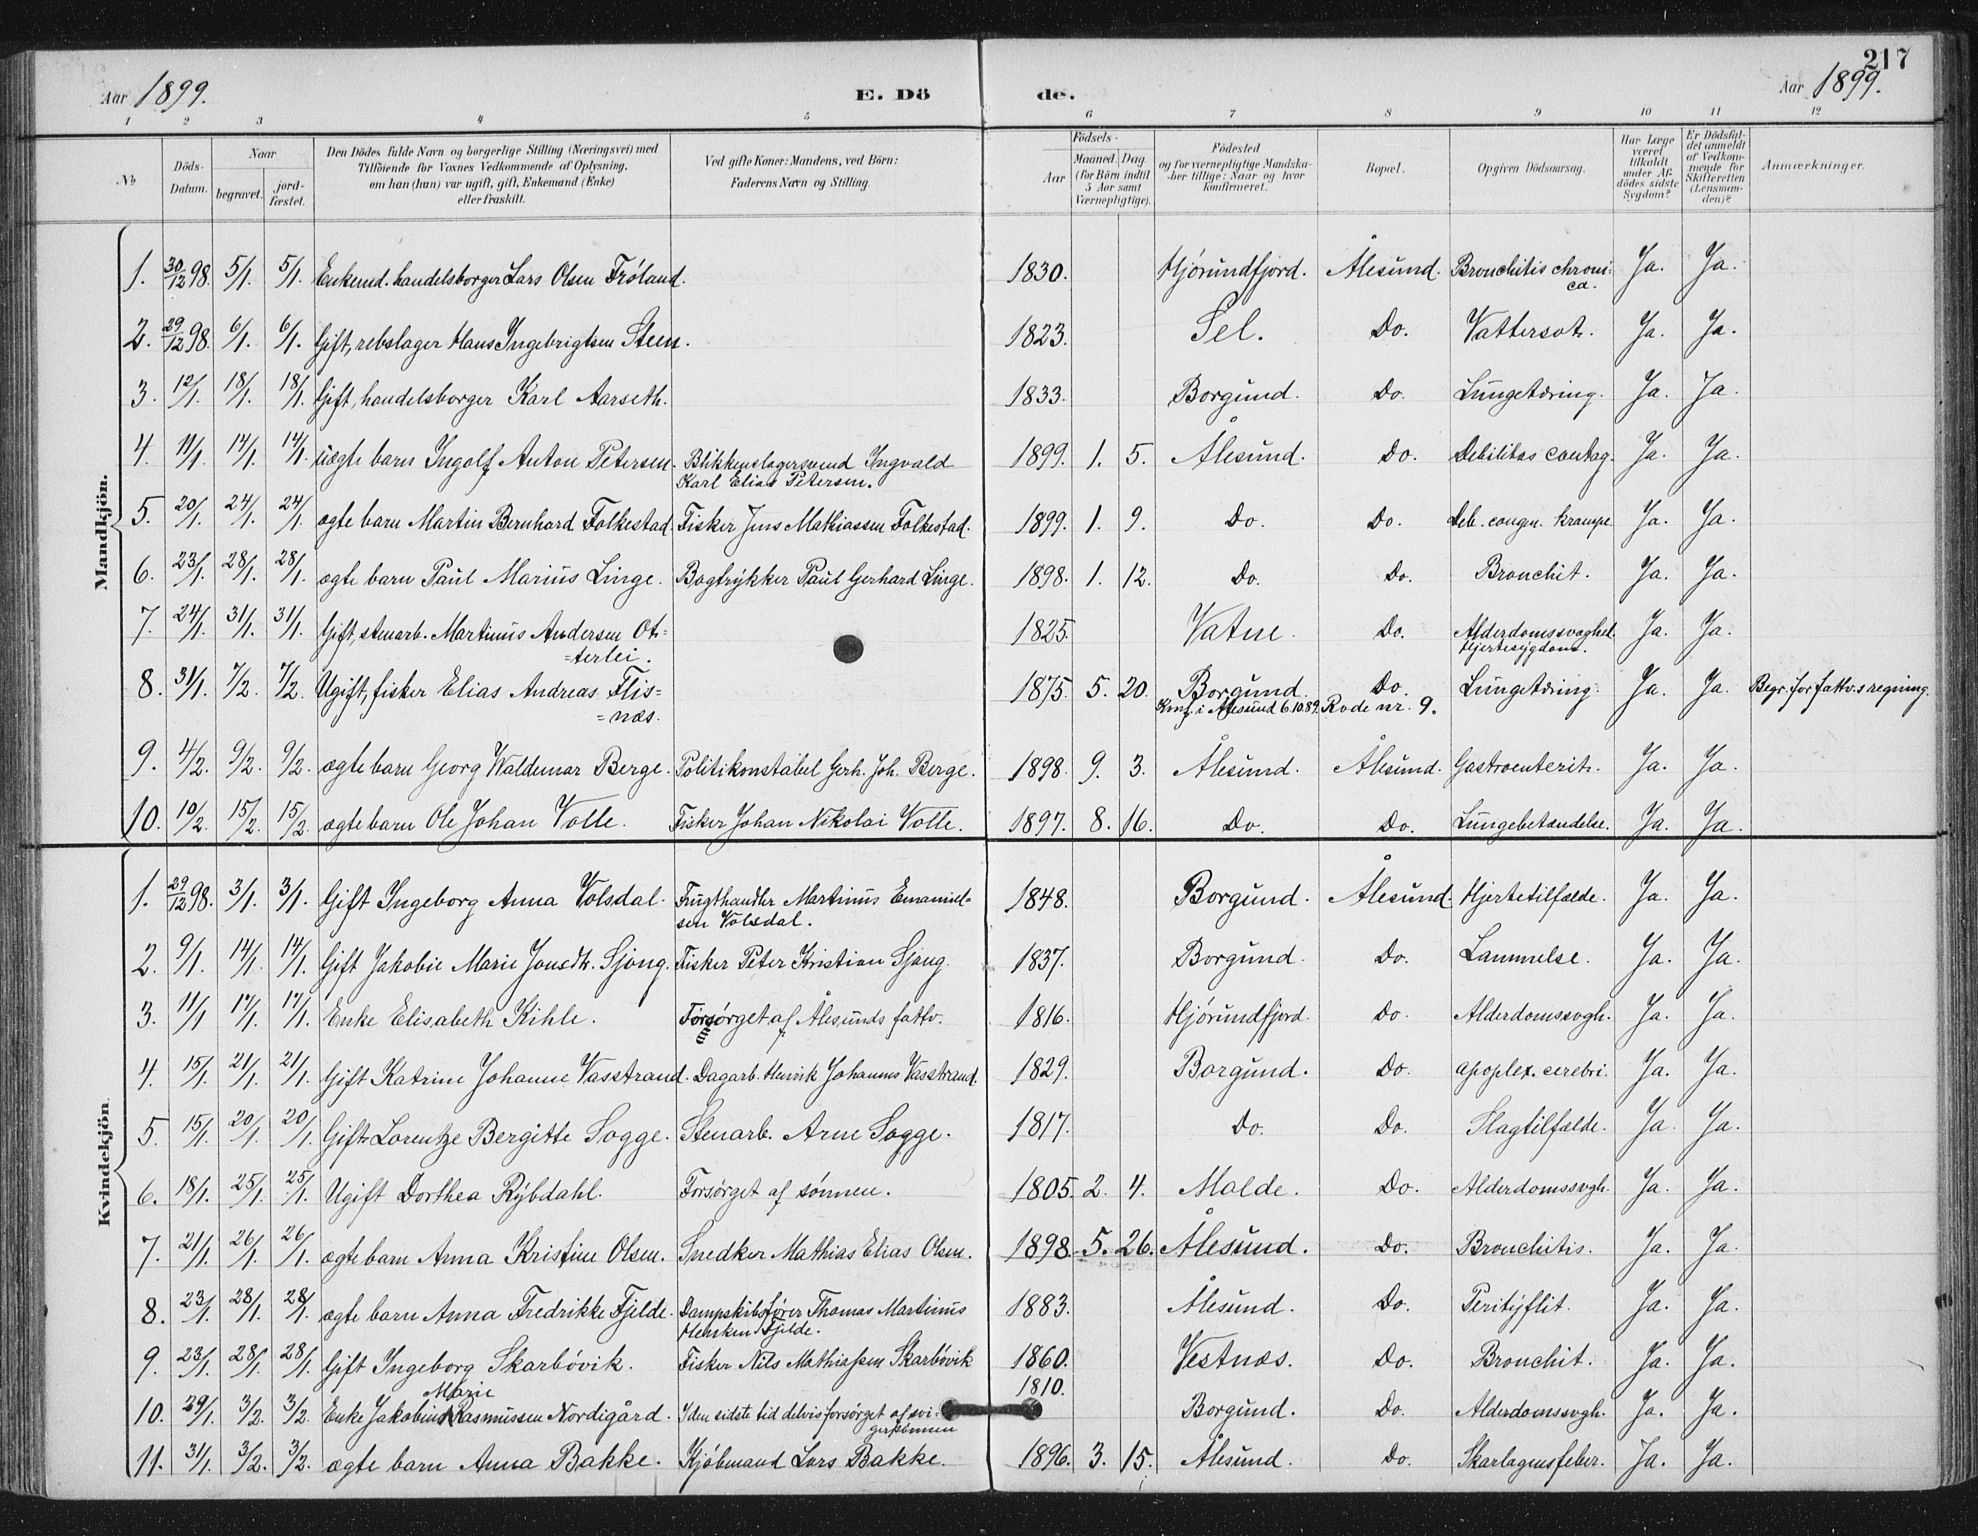 217
Aar 1899. E. Dö de. Aar 1899.
1 2 3 4 5 6 7 8 9 10 11 12
No
Döds-Datum.
Naar begravet. jordfæstet.
Den Dödes fulde Navn og borgerlige Stilling (Næringsvei) med Tilföiende for Voxnes Vedkommende af Oplysning, om han (hun) var ugift, gift, Enkemand (Enke) eller fraskilt.
Ved gifte Koner: Mandens, ved Börn: Faderens Navn og Stilling.
Födsels- Aar Maaned. Dag. (for Börn indtil 5 Aar samt Værnepligtige).
Födested og for værnepligtige Mandskaber tillige: Naar og hvor konfirmeret.
Bopæl.
Opgiven Dödsaarsag.
Har Læge været tilkaldt under Afdödes sidste Sygdom?
Er Dödsfaldet anmeldt af Vedkommende for Skifteretten (Lensmanden)?
Anmærkninger.
Mandkjön.
1. 30/12 98. 5/1. 5/1. Enkemd. handelsborger Lars Olsen Fröland. 1830. Hjörundfjord. Ålesund. Bronchitis chronica. Ja. Ja.
2. 29/12 98. 6/1. 6/1. Gift, rebslager Hans Ingebrigtsen Steen. 1823. Sel. Do. Vattersot. Ja. Ja.
3. 12/1. 18/1. 18/1. Gift, handelsborger Karl Aarseth. 1833. Borgund. Do. Lungetæring. Ja. Ja.
4. 11/1. 14/1. 14/1. uægte barn Ingolf Anton Petersen. Blikkenslagersvend Ingvald Karl Elias Petersen. 1899. 1. 5. Ålesund. Do. Debilitas Ja. Ja.
5. 20/1. 24/1. 24/1. ægte barn Martin Bernhard Folkestad. Fisker Jens Mathiassen Folkestad. 1899. 1. 9. Do. Do. Deb. congen. krampe. Ja. Ja.
6. 23/1. 28/1. 28/1. ægte barn Paul Marius Linge. Bogtrykker Paul Gerhard Linge. 1898. 1. 12. Do. Do. Bronchit. Ja. Ja.
7. 24/1. 31/1. 31/1. Gift, stenarb. Martinus Andersen Ot=
=terlei. 1825. Vatne. Do. Alderdomssvaghed. Hjertesygdom. Ja. Ja.
8. 31/1. 7/2. 7/2. Ugift, fisker Elias Andreas Flis=
=næs. 1875. 5. 20. Borgund. Konf. i Ålesund 6.10.89. Do. Rode nr. 9. Lungetæring. Ja. Ja. Begr. for fattv.s regning.
9. 4/2. 9/2. 9/2. ægte barn Georg Waldemar Berge. Politikonstabel Gerh. Joh. Berge. 1898. 9. 3. Ålesund. Ålesund. Gastroenterit. Ja. Ja.
10. 10/2. 15/2. 15/2. ægte barn Ole Johan Volle. Fisker Johan Nikolai Volle. 1897. 8. 16. Do. Do. Lungebetændelse. Ja. Ja.
Kvindekjön.
1. 29/12 98. 3/1. 3/1. Gift Ingeborg Anna Volsdal. Frugthandler Martinus Emanuelsen Volsdal. 1848. Borgund. Ålesund. Hjertetilfælde. Ja. Ja.
2. 9/1. 14/1. 14/1. Gift Jakobie Marie Jonsdt. Sjong. Fisker Peter Kristian Sjong. 1837. Borgund. Do. Lammelse. Ja. Ja.
3. 11/1. 17/1. 17/1. Enke Elisabeth Kihle. Forsörget af Ålesunds fattv. 1816. Hjörundfjord. Do. Alderdomssvgh. Ja. Ja.
4. 15/1. 21/1. 21/1. Gift Katrine Johanne Vasstrand. Dagarb. Henrik Johannes Vasstrand. 1829. Borgund. Do. apoplex. cerebri. Ja. Ja.
5. 15/1. 20/1. 20/1. Gift Lorentze Bergitte Sogge. Stenarb. Arne Sogge. 1817. Do. Do. Slagtilfælde. Ja. Ja.
6. 18/1. 25/1. 25/1. Ugift Dorthea Rypdahl. Forsörget af sönnen. 1805. 2. 4. Molde. Do. Alderdomssvgh. Ja. Ja.
7. 21/1. 26/1. 26/1. ægte barn Anna Kristine Olsen. Snedker Mathias Elias Olsen. 1898. 5. 26. Ålesund. Do. Bronchitis. Ja. Ja.
8. 23/1. 28/1. 28/1. ægte barn Anna Fredrikke Fjelde. Dampskibsförer Thomas Martinus Fjelde. 1883. Ålesund. Do. Perityflit. Ja. Ja.
9. 23/1. 28/1. 28/1. Gift Ingeborg Skarbövik. Fisker Nils Mathiassen Skarbövik 1860. Vestnæs. Do. Bronchit. Ja. Ja.
10. 29/1. 3/2. 3/2. Enke Jakobine Marie Rasmussen Nordigård. I den sidste tid delvis forsörget af svigersönnen 1810. Borgund. Do. Alderdomssvgh. Ja. Ja.
11. 31/1. 3/2. 3/2. ægte barn Anna Bakke. Kjöbmand Lars Bakke. 1896. 3. 15. Ålesund. Do. Skarlagensfeber. Ja. Ja.